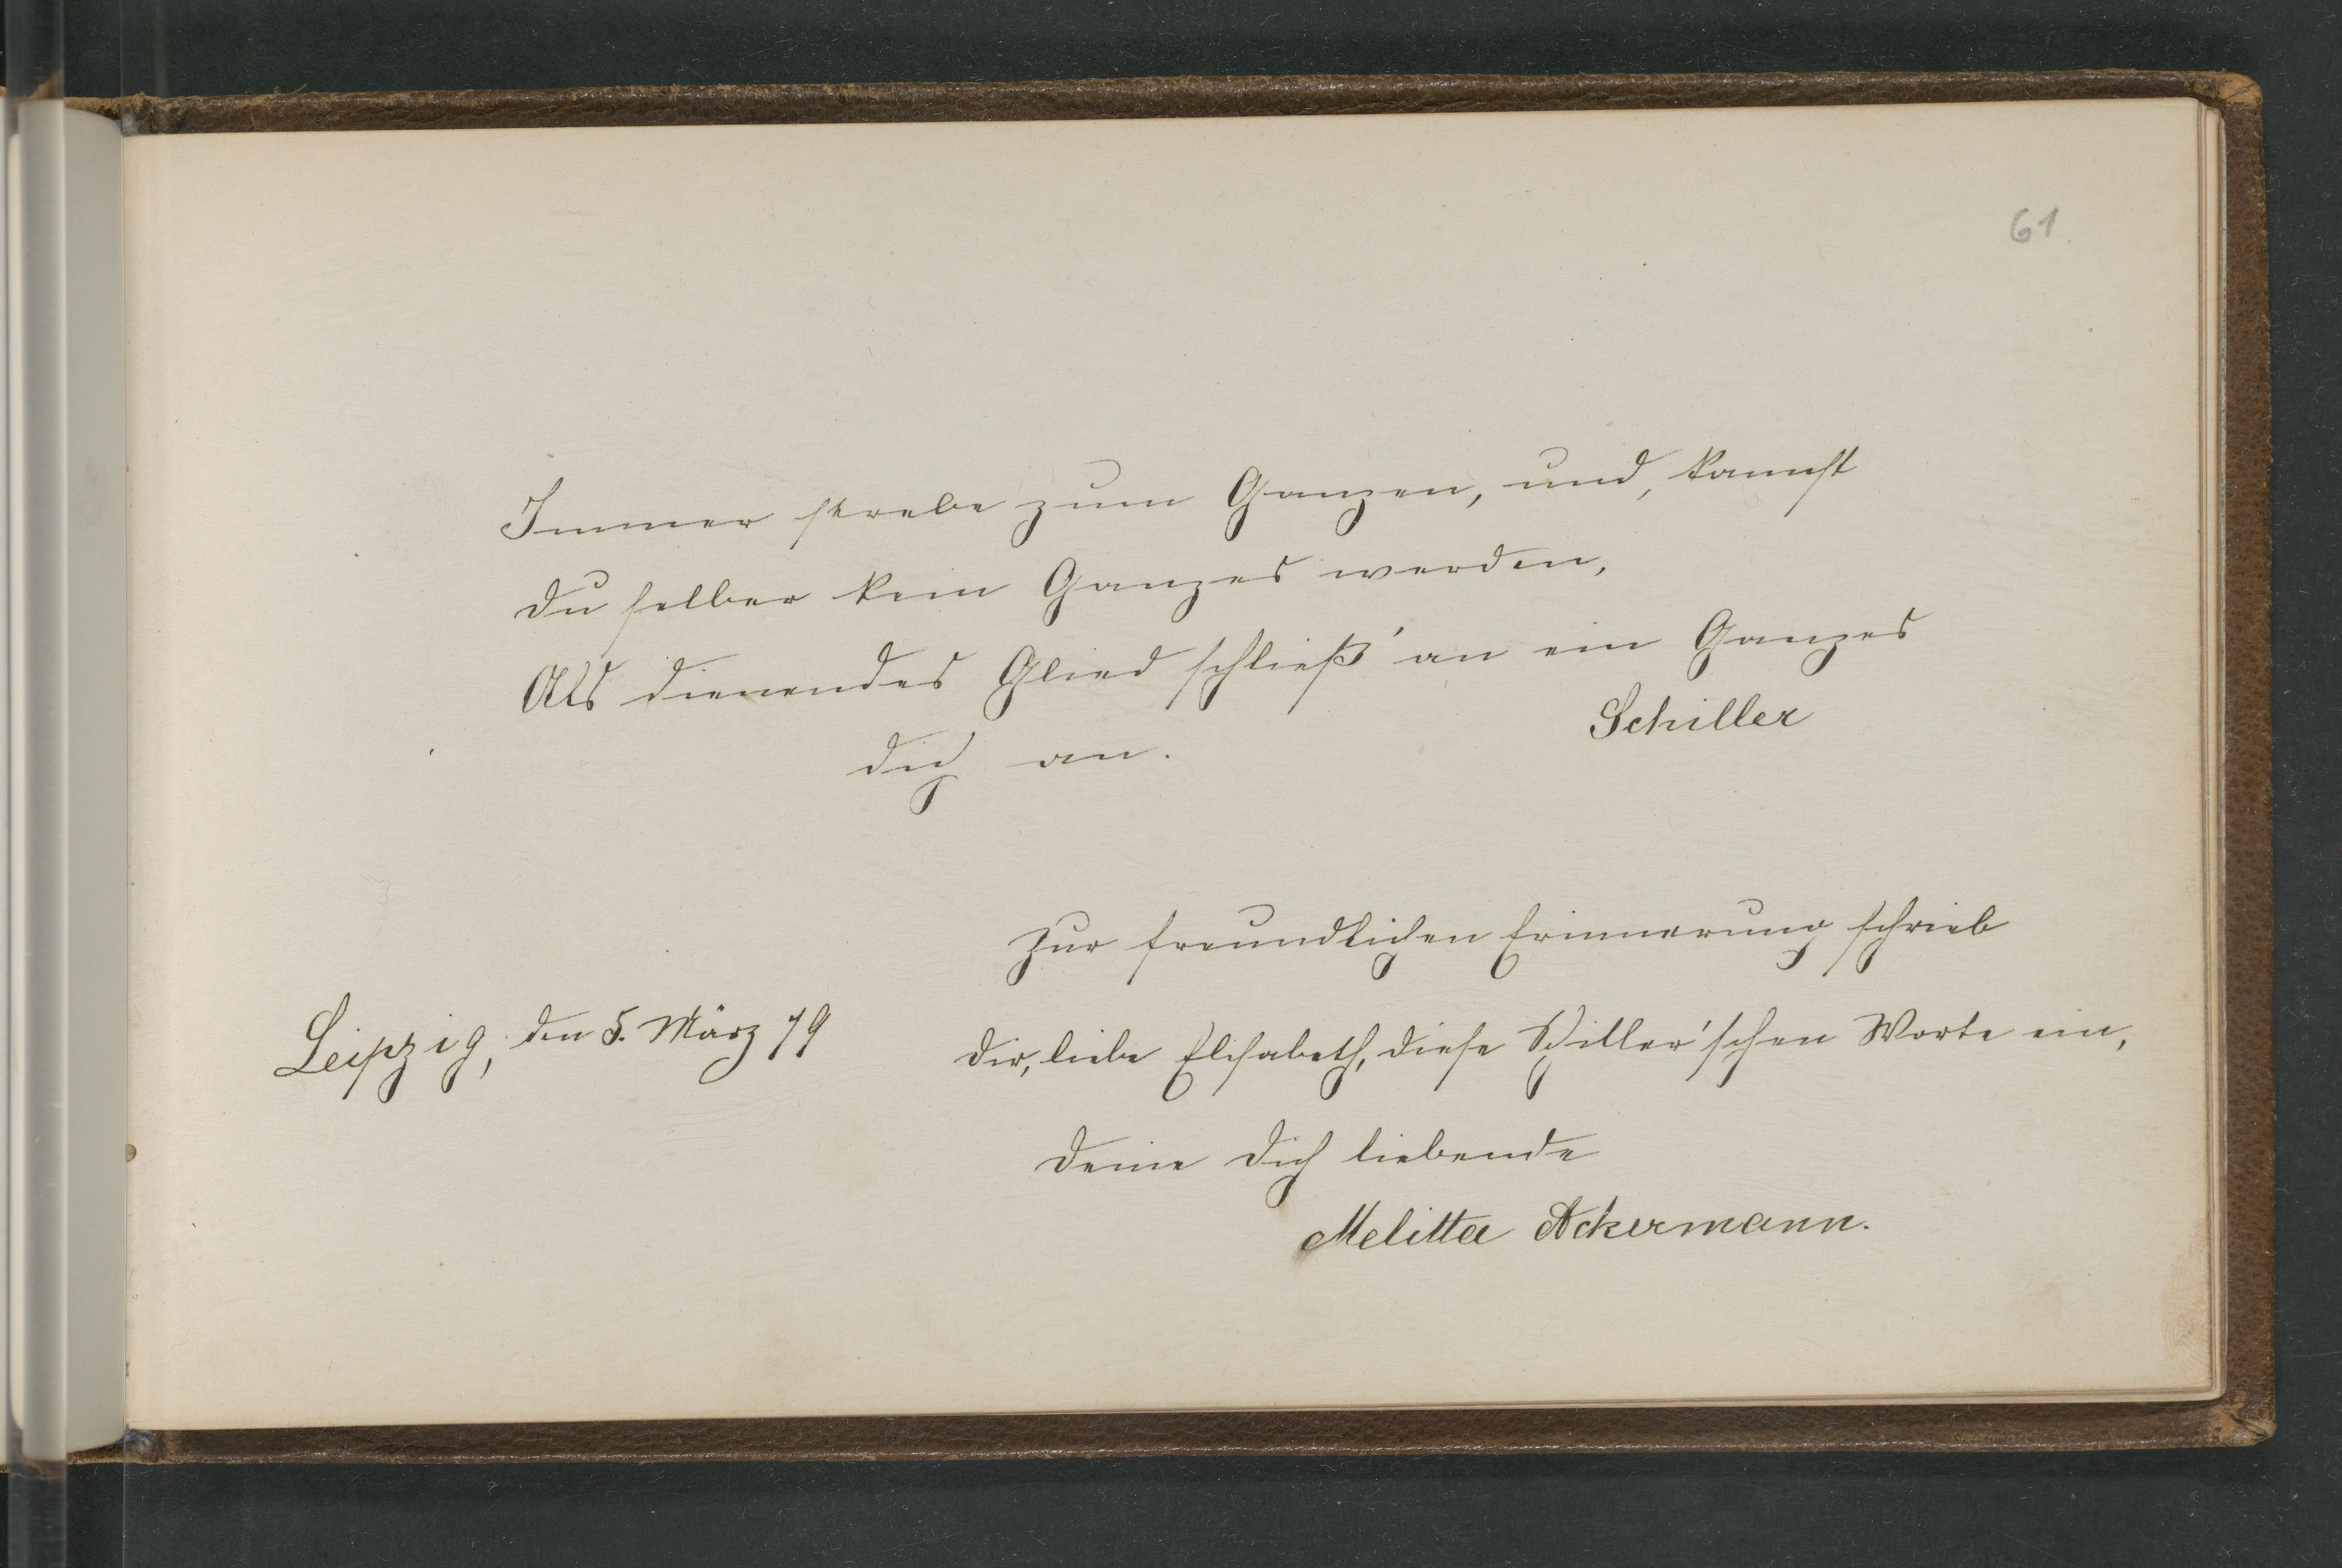 61
Immer strebe zum Ganzen, und, kannst
du selber kein Ganzes werden,
Als dienendes Glied schließ' an ein Ganzes
dich an.
Schiller
Zur freundlichen Erinnerung schrieb
Leipzig, den 5. März 79
dir, liebe Elisabeth, diese Schiller'schen Worte ein,
Deine dich liebende
Melitta Ackermann.